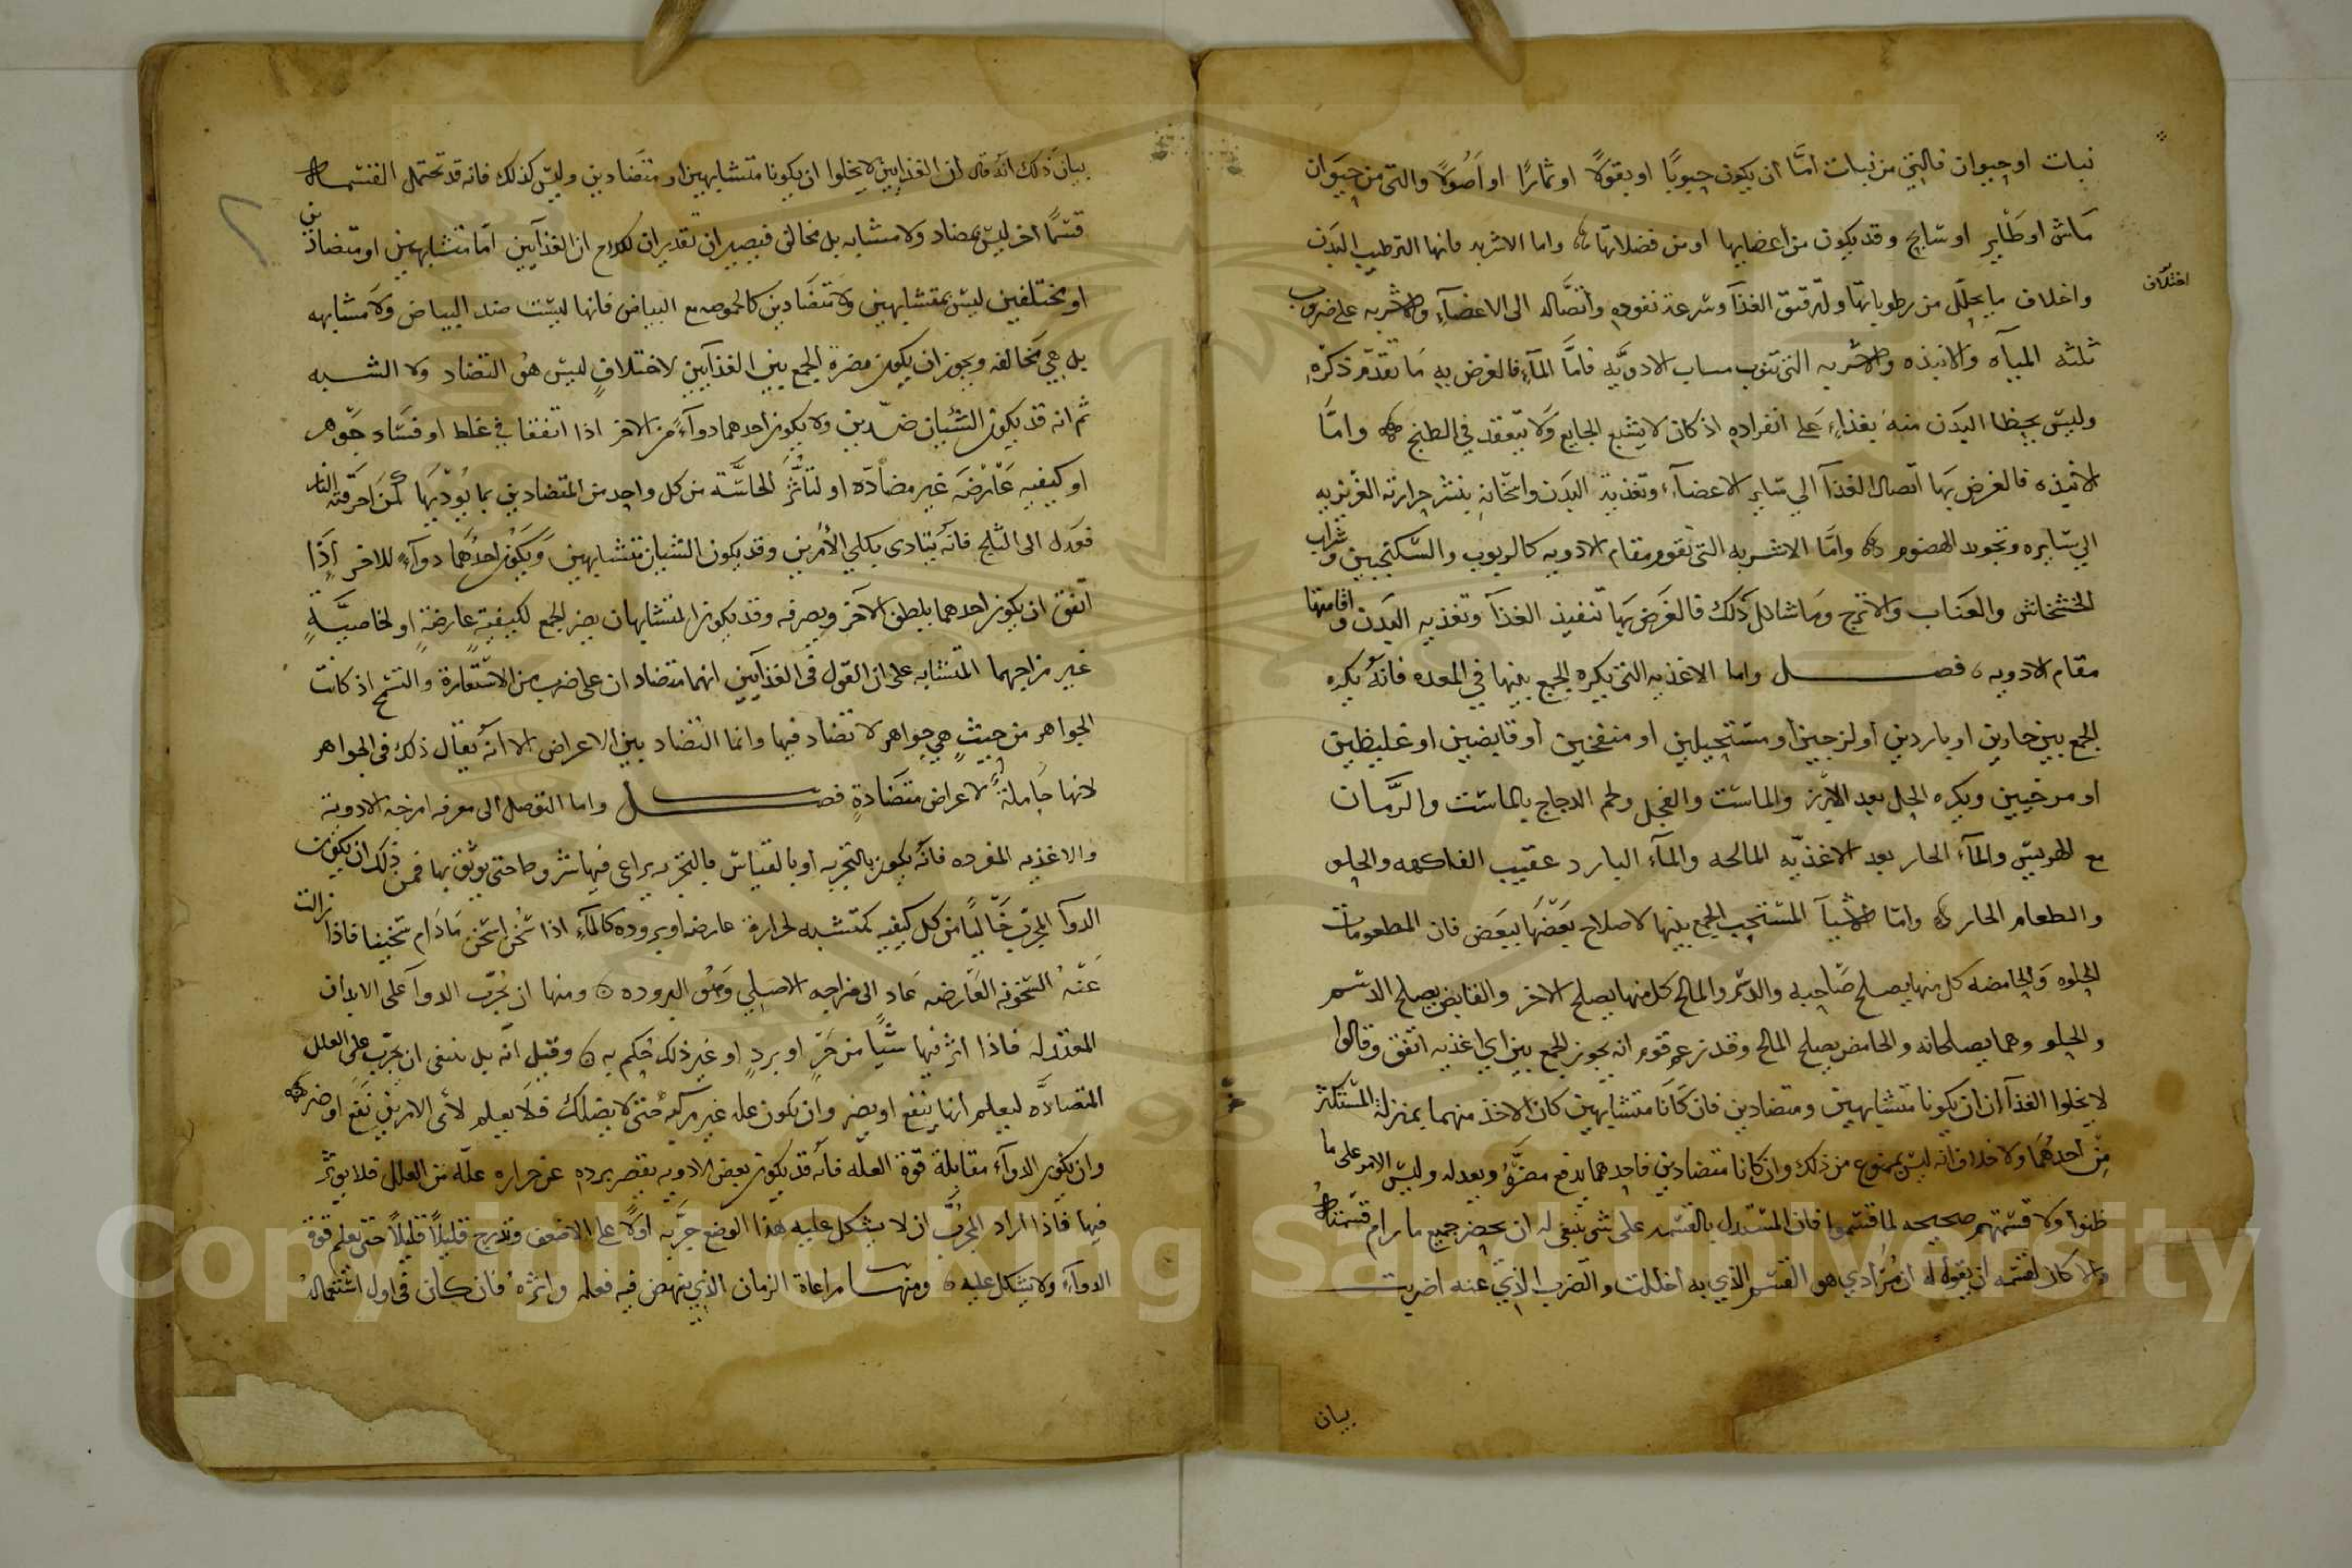 نبات او حيوان فالتي من نبات امّا ان يكون حبوبًا او بقولًا او ثمارًا او اصُولًا والتى من حيَوان
مَاشٍ او طَايرٍ او سَابحٍ وقد يكون من اعضايها او من فضلاتها واما الاشربه فانها لترطيب البدَن
واخلاف ما يحلّل من رطوباتها ولترقيق الغذآ وسرعة نفوده واتصَّاله الى الاعضآءِ والاشربه على ضروب
اختلاف
ثلثه المياه والانبذه والاشربه التى تنوب مناب الادويَّه فامَّا المآءِ فالغرض بهِ مَا تقدّم ذكرهُ
وليسَ يحظا البدَن منهُ بغذاءٍ عَلى انفرادهِ اذ كان لا يشبع الجايع وَلا ينعقد في الطبخ وامّا
الانبذه فالغرض بهَا اتصال الغذآ الي سَاير الاعضآء وتغذية البدَن واسخانهِ بنشر حرارته الغريزيه
الي سَايره وتجويد الهضوم وامَّا الاشربه التى تقوم مقام الادويه كالربوب والسكنجبين وشراب
الخشخاش والعنَاب والاترج ومَا شاكل ذلك فالغَرض بهَا تنفيذ الغذآ وتغذيه البَدن واقامتها
مقام الادويه فصل واما الاغذيه التى يكره الجمع بينها في المعده فانّهُ يكره
الجمع بين حادين او باردين او لزجين او مستحيلين او منفخين او قابضين او غليظين
او مرخيين ويكره الخل بعد الارز والماست والفجل ولحم الدجاج بالماست والرَّمان
مع الهريس والمآء الحار بعد الاغذيّه المالحه والمآء البارد عقيب الفاكهه والحلو
والطعام الحار وامّا الاشيآ المستحب الجمع بينها لاصلاح بعَضهَا ببعَض فان المطعومات
الحلوه وَالحامضه كل منها يصلح صَاحبه والدسم والمالح كل منها يصلح الاخر والقابض يصلح الدسم
والحلو وهما يصلحانه والحامض يصلح المالح وقد زعم قوم انه يجوز الجمع بين اي اغذيه اتفق وقالوا
لا يخلوا الغذآان ان يكونا متشابهين ومتضادين فان كانَا متشابهين كان الاخذ منهما بمنزلة المستكثر
مِن احدهُمَا ولا خلاف انه ليسَ بممنوع من ذلك وان كانا متضادين فاحدهما يدفع مضرَّهُ ويعدله وليسَ الامر على ما
ظنوا ولا قسمتهم صحيحه لما قسّموا فان المسّتدل بالقسمه على شى ينبغى له ان يحصر جميع ما رام قسمته
والا كان لقسمه ان يقول له ان مُرادي هو القسم الذي به اخللت والضرب الذي عنه اضربت
بيان
بيان ذلك انه قال ان الغذايين لا يخلوا ان يكونا متشابهين او متضَادين وليسَ كذلك فانه قد تحتمل القسمه
قسمًا اخر ليسَ بمضاد ولا مشابه بل مخالف فيصير ان تقدير ان الغذآيين امّا متشابهين او متضادين
او مختلفين ليسَ بمتشابهين ولا متضَادين كالحموضه مع البياض فانها ليسَت ضد البياض وَلا مشابهه
بل هي مخالفه ويجوز ان يكون مضرة الجمع بين الغذآيين لاختلافٍ ليسَ هوُ التضاد ولا الشبه
ثم انه قد يكون الشيئان ضدّين ولا يكون احدهما دوآءً من الاخر اذا اتفقا في غلط او فسَاد جَوهر
او كيفيه عَارضَه غير مضادّه او لتأثرَ الحاسَّة من كل واحد من المتضادين بما يؤذيهَا كمنَ احرقته النار
فعَدل الى الثلج فانهُ يتاذى بكلي الأمرين وقد يكون الشيان متشابهين وَيَكون احدُهَما دوآءً للاخر اذَا
اتفق ان يكون احدهما يلطف الآخر ويصرفه وقد يكون المتشابهان يضر الجمع لكيفيةٍ عارضَةٍ او لخاصيَّةٍ
غير مزاجهما المتشابه على ان القول فى الغذآيين انهما متضادان على ضرب من الاستعارة والتسمح اذ كانت
الجواهر من حيث هي جواهر لا تضاد فيها وانما التضاد بين الاعراض الا انّهُ يقال ذلك فى الجواهر
لانها حَاملة لاعراض متضَادةٍ فصل واما التوصل الى معرفه امزجه الادوية
والاغذيه المفرده فانّه يكون بالتجربه او بالقياس فالتجربه يراعى فيها شروطا حتى يوثق بها فمن ذلك ان يكون
الدوآ المجرّب خَاليًا من كل كيفيه مكتسبه لحرارة عارضه او بروده كالمآءِ اذا سُخن اسَخن مَادَام سَخينا فاذا زالت
عَنهُ السّخونه العَارضه عَاد الى مزاجه الاصَلي وَهوُ البروده ومنها ان يُجرّب الدوآ على الابدان
المعتدله فاذا اثر فيها شيًا من حَرٍّ او بردٍ او غير ذلك حُكم به وقيل انّه بل ينبغى ان يجرّب على العلل
المتضادَّه ليعلم ايها ينفع او يضر وان يكون عله غير مركبه حتى لا يضلك فلا يعلم لأى الامرين نَفع او ضر
وان يكون الدوآء مقابلة قوة العلّه فانّه قد يكون بعض الادويه يقصر برده عن حراره علّه من العلل فلا يوثر
فيها فاذا اراد المجرِّب ان لا يشكل عليه هذا الوضع جرَّبه اولًا على الاضعف وتدرج قليلًا قليلًا حتى يعلم قوة
الدوآءِ ولا يشكل عليه ومنها مراعاة الزمان الذي ينهض فيه فعله واثرهُ فان كان فى اول استعماله